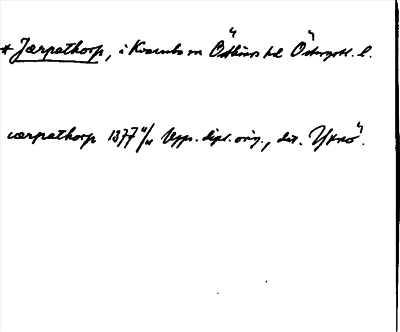 * Jærpathorp, i Kvarsebo sn Östkinds hd Östergötl. l.
værpathorp 1377 4/11 Upps. dipl. orig., dat. Yxnö.